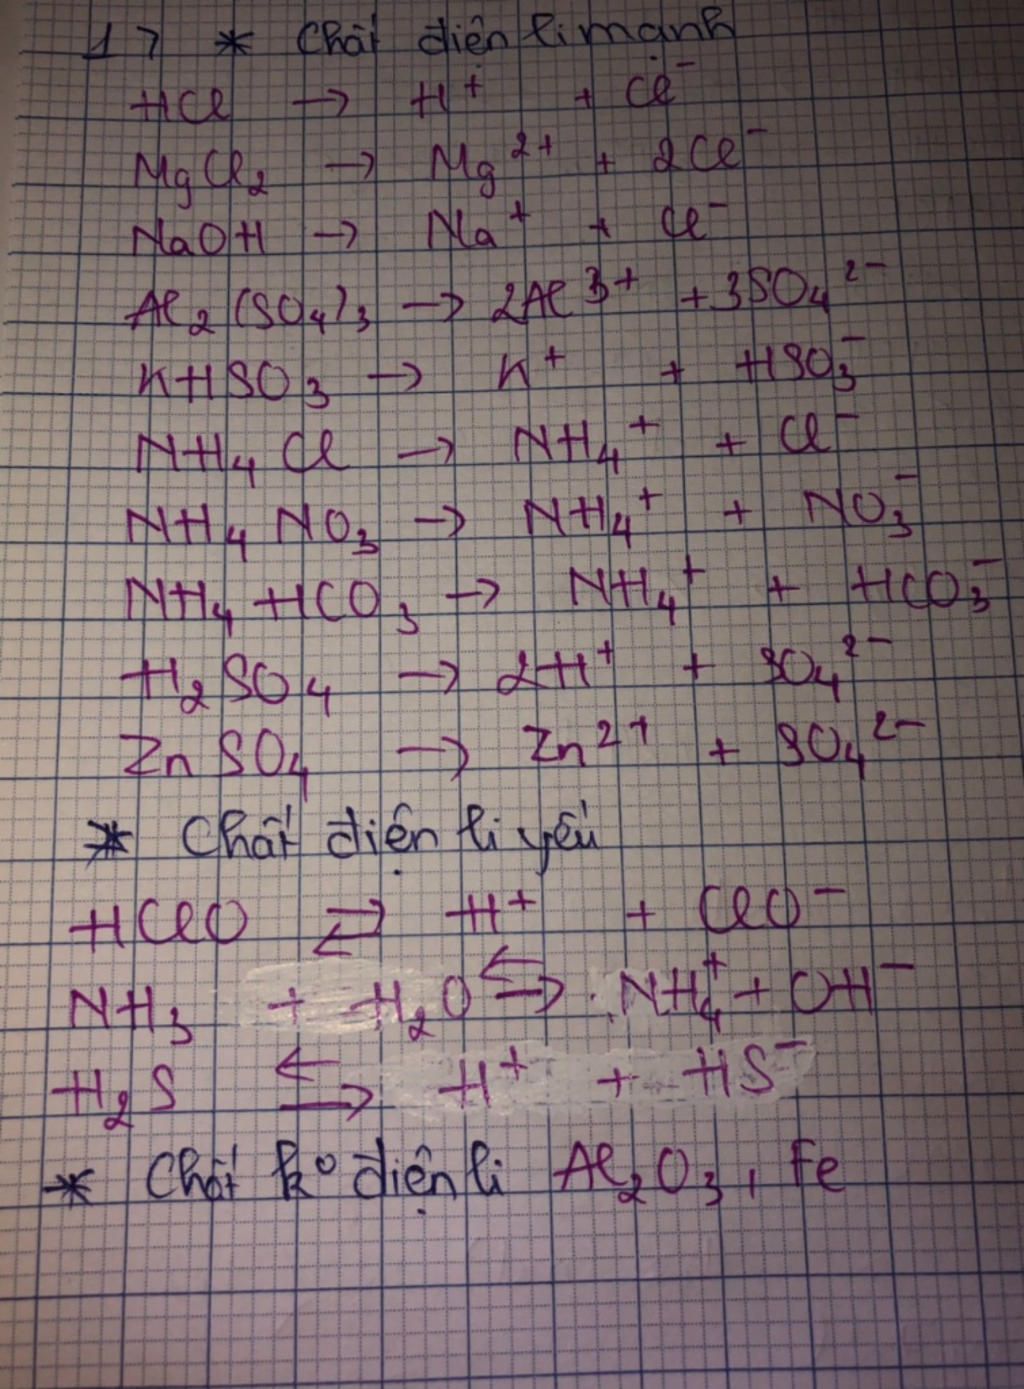 1) * Chất điện li mạnh
HCl → H⁺ + Cl⁻
MgCl₂ → Mg²⁺ + 2Cl⁻
NaOH → Na⁺ + Cl⁻
Al₂(SO₄)₃ → 2Al³⁺ + 3SO₄²⁻
KHSO₃ → K⁺ + HSO₃⁻
NH₄Cl → NH₄⁺ + Cl⁻
NH₄NO₃ → NH₄⁺ + NO₃⁻
NH₄HCO₃ → NH₄⁺ + HCO₃⁻
H₂SO₄ → 2H⁺ + SO₄²⁻
ZnSO₄ → Zn²⁺ + SO₄²⁻
* Chất điện li yếu
HClO ⇄ H⁺ + ClO⁻
NH₃ + H₂O ⇄ NH₄⁺ + OH⁻
H₂S ⇄ H⁺ + HS⁻
* Chất k° điện li Al₂O₃, Fe